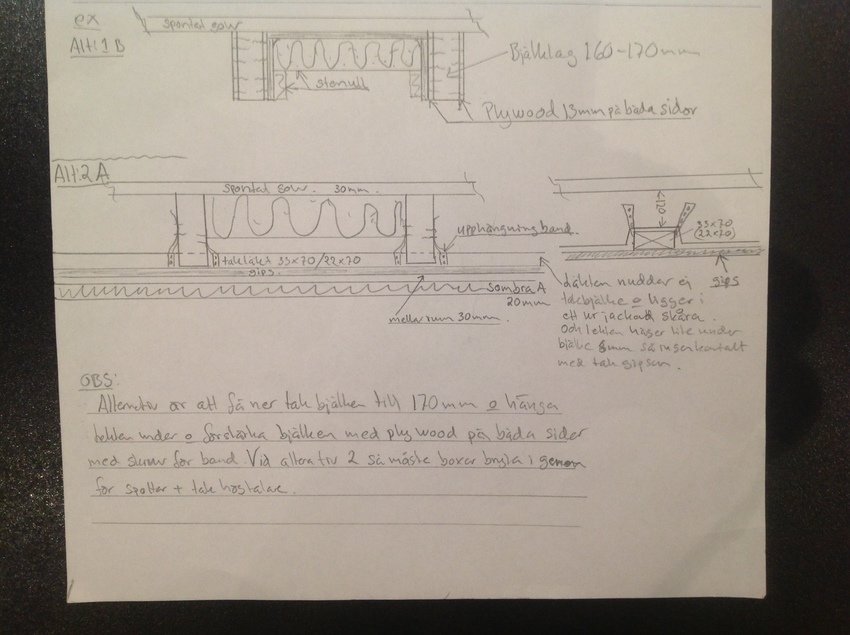 ex
Alt: 1 B
spontat golv
Bjälklag 160-170mm
stenull
Plywood 13mm på båda sidor
Alt: 2 A
spontat golv. 30mm.
upphängningband.
120
33x70
(22x70)
takläkt 33x70/22x70
gips.
gips
sombra A
20mm
mellanrum 30mm.
läkten nuddar ej
takbjälke o ligger i
ett urjackad skåra.
Och läkten hänger lite under
bjälke 5mm så ingen kontakt
med tak gipsen.
OBS:
Alternativ är att få ner tak bjälken till 170mm o hänga
läkten under o förstärka bjälken med plywood på båda sidor
med skruv för band Vid alterativ 2 så måste boxar bryta igenom
för spottar + tak högtalare.